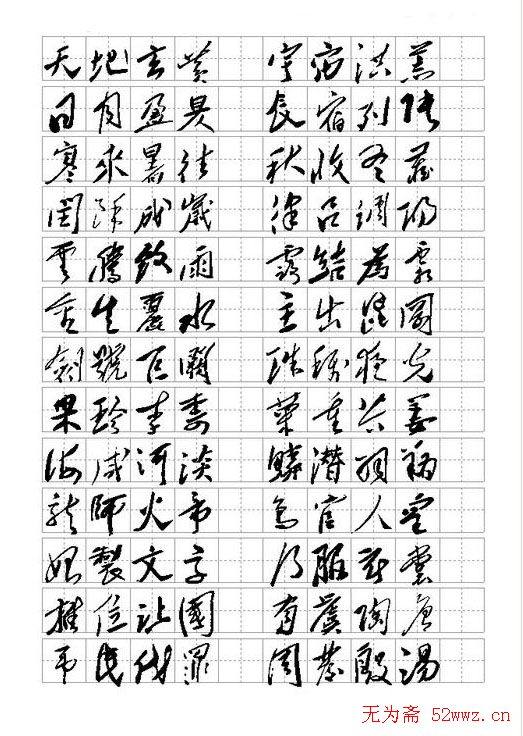 天地玄黃 宇宙洪荒
日月盈昃 辰宿列張
寒來暑往 秋收冬藏
閏餘成歲 律呂調陽
雲騰致雨 露結為霜
金生麗水 玉出崑岡
劍號巨闕 珠稱夜光
果珍李柰 菜重芥薑
海咸河淡 鱗潛羽翔
龍師火帝 鳥官人皇
始製文字 乃服衣裳
推位讓國 有虞陶唐
弔民伐罪 周發殷湯
无为斋 52wwz.cn